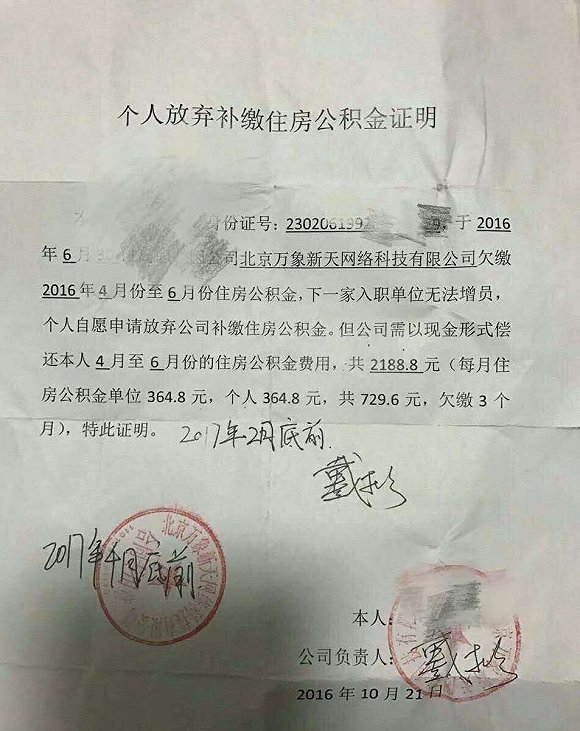 个人放弃补缴住房公积金证明
身份证号：230206199 ，于 2016
年 6 月 30 公司北京万象新天网络科技有限公司欠缴
2016 年 4 月份至 6 月份住房公积金，下一家入职单位无法增员，
个人自愿申请放弃公司补缴住房公积金。但公司需以现金形式偿
还本人 4 月至 6 月份的住房公积金费用，共 2188.8 元（每月住
房公积金单位 364.8 元，个人 364.8 元，共 729.6 元，欠缴 3 个
月），特此证明。 2017年2月底前
2017年 月底前
北京万象新天网络科技有限公司
本人：
公司负责人：
2016 年 10 月 21 日